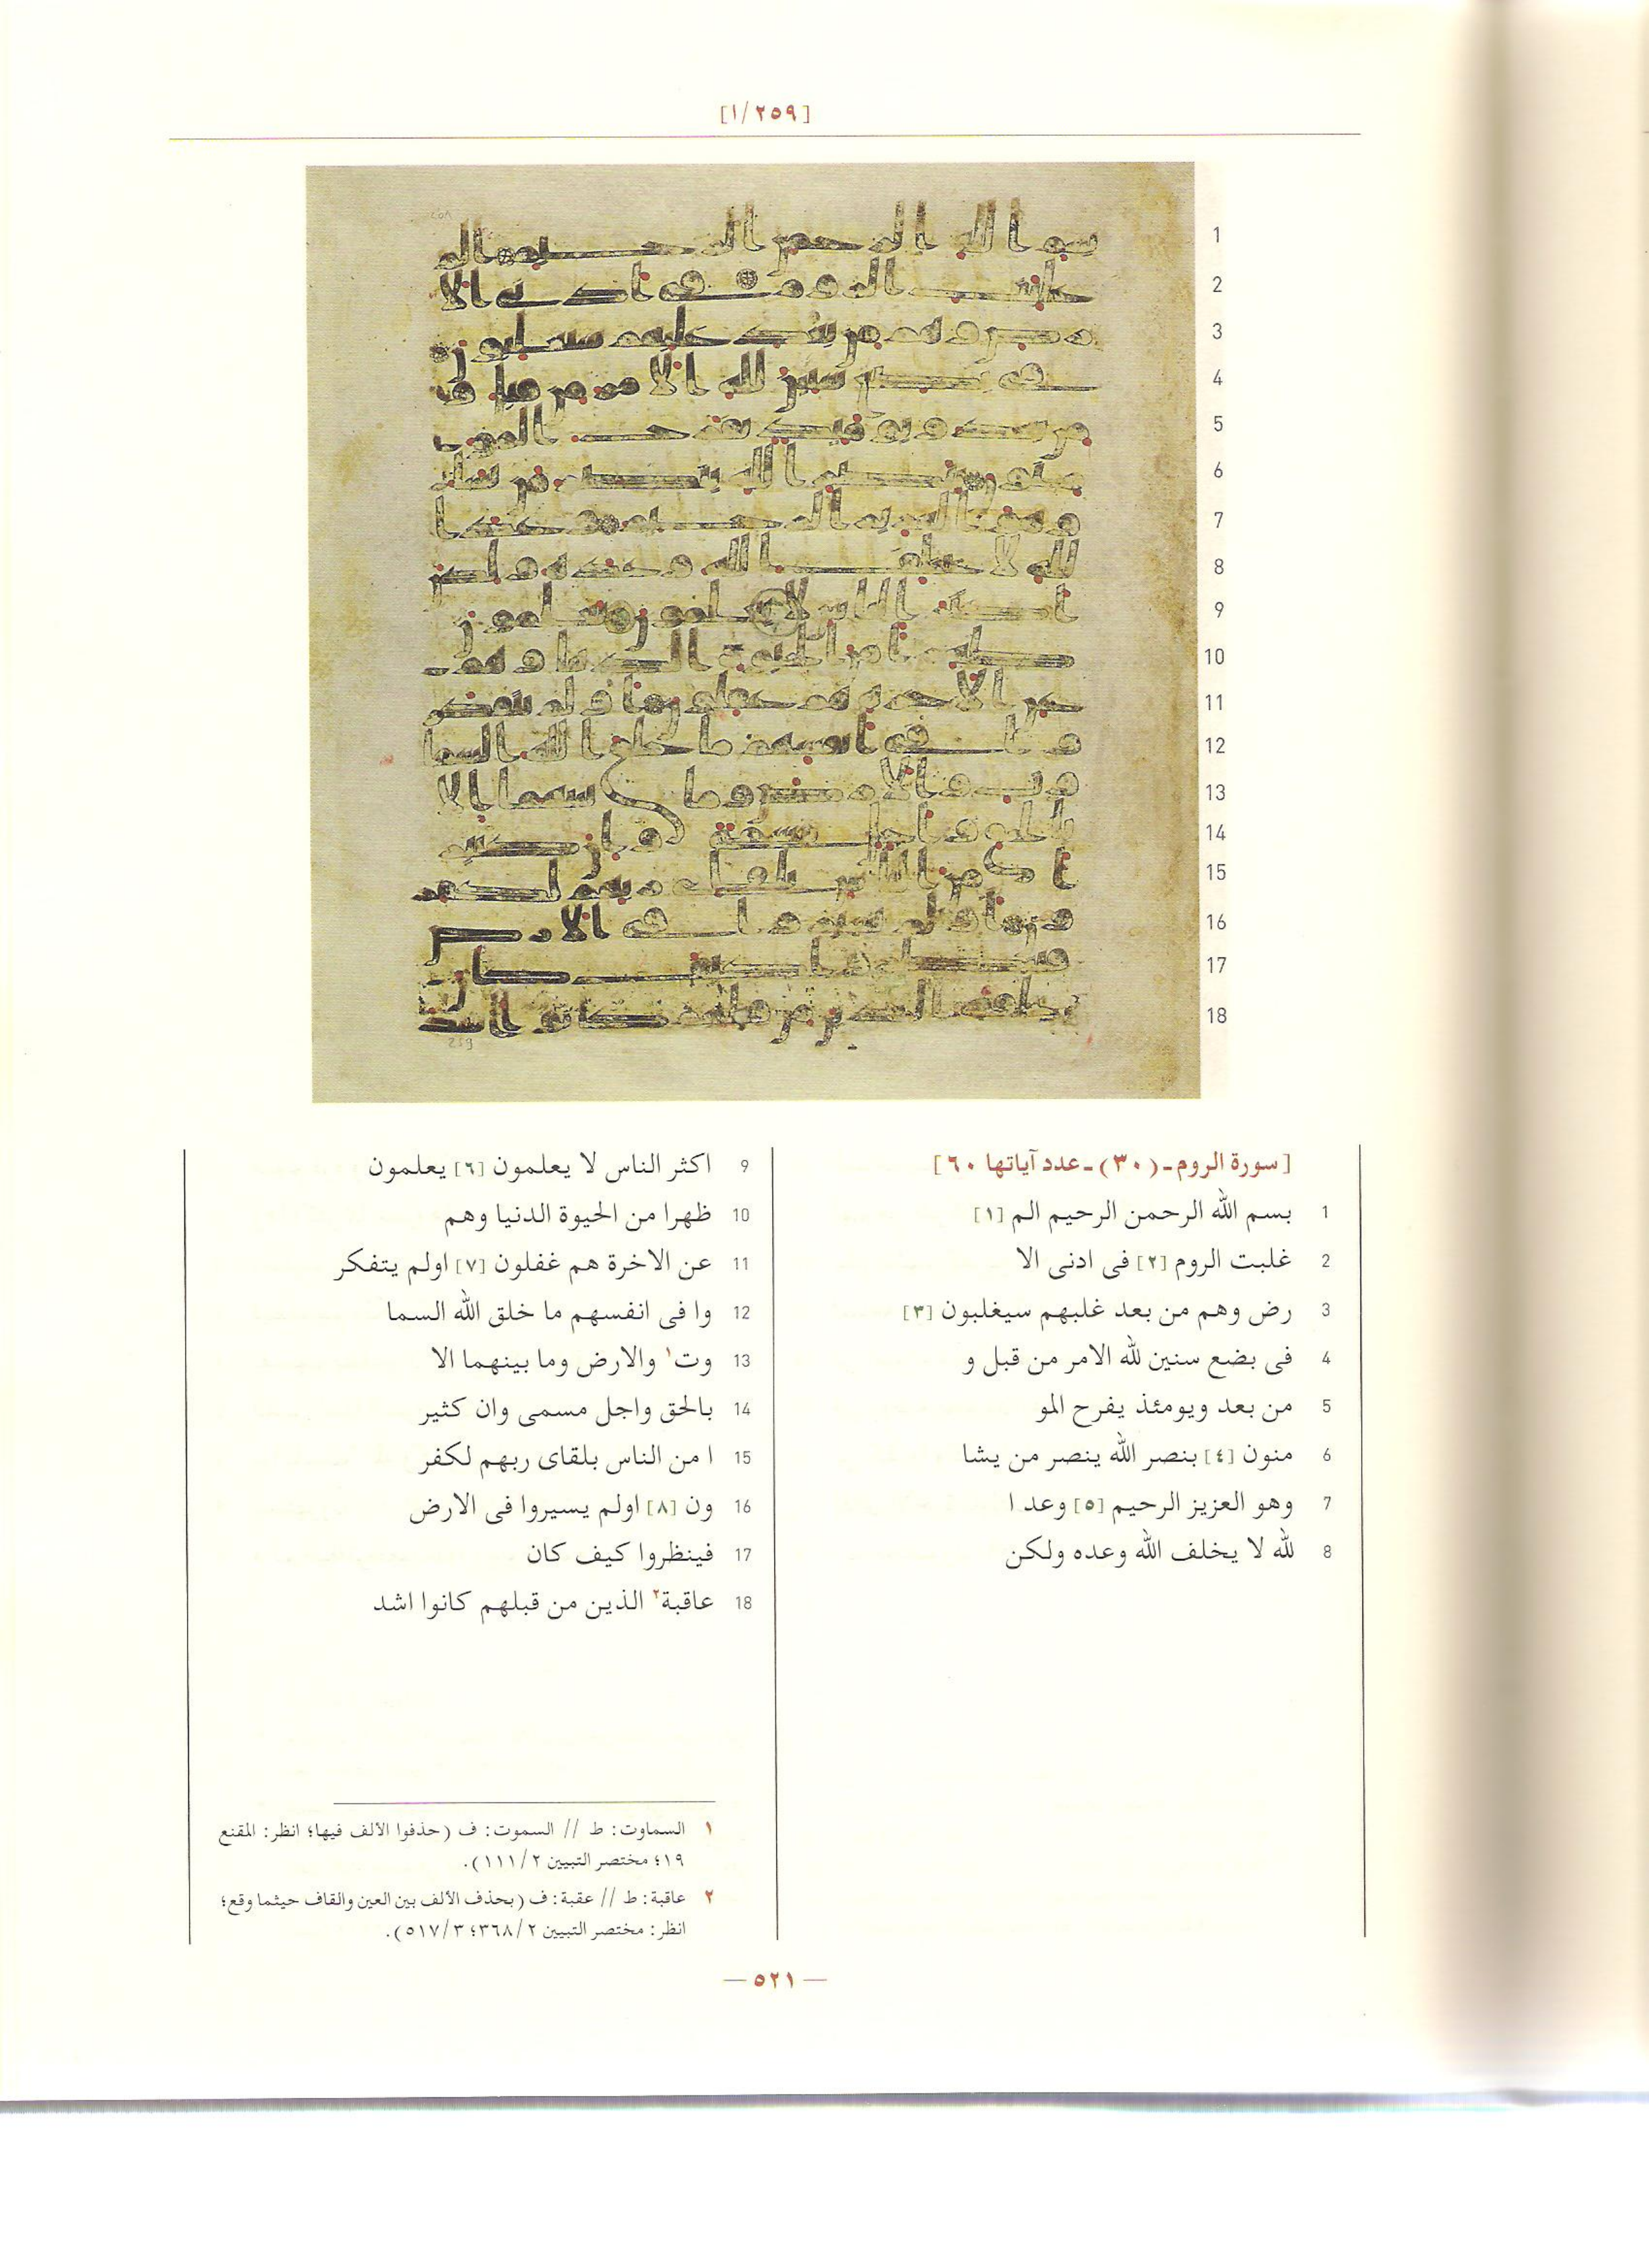 [١/٢٥٩]
1
2
3
4
5
6
7
8
9
10
11
12
13
14
15
16
17
18
[سورة الروم-(٣٠)-عدد آياتها ٦٠]
1 بسم الله الرحمن الرحيم الم [١]
2 غلبت الروم [٢] فى ادنى الا
3 رض وهم من بعد غلبهم سيغلبون [٣]
4 فى بضع سنين لله الامر من قبل و
5 من بعد ويومئذ يفرح المو
6 منون [٤] بنصر الله ينصر من يشا
7 وهو العزيز الرحيم [٥] وعد ا
8 لله لا يخلف الله وعده ولكن
9 اكثر الناس لا يعلمون [٦] يعلمون
10 ظهرا من الحيوة الدنيا وهم
11 عن الاخرة هم غفلون [٧] اولم يتفكر
12 وا فى انفسهم ما خلق الله السما
13 وت١ والارض وما بينهما الا
14 بالحق واجل مسمى وان كثير
15 ا من الناس بلقاى ربهم لكفر
16 ون [٨] اولم يسيروا فى الارض
17 فينظروا كيف كان
18 عاقبة٢ الذين من قبلهم كانوا اشد
١ السماوت: ط // السموت: ف (حذفوا الألف فيها؛ انظر: المقنع
١٩؛ مختصر التبيين ١١١/٢).
٢ عاقبة: ط // عقبة: ف (بحذف الألف بين العين والقاف حيثما وقع؛
انظر: مختصر التبيين ٣٦٨/٢؛ ٥١٧/٣).
— ٥٢١ —